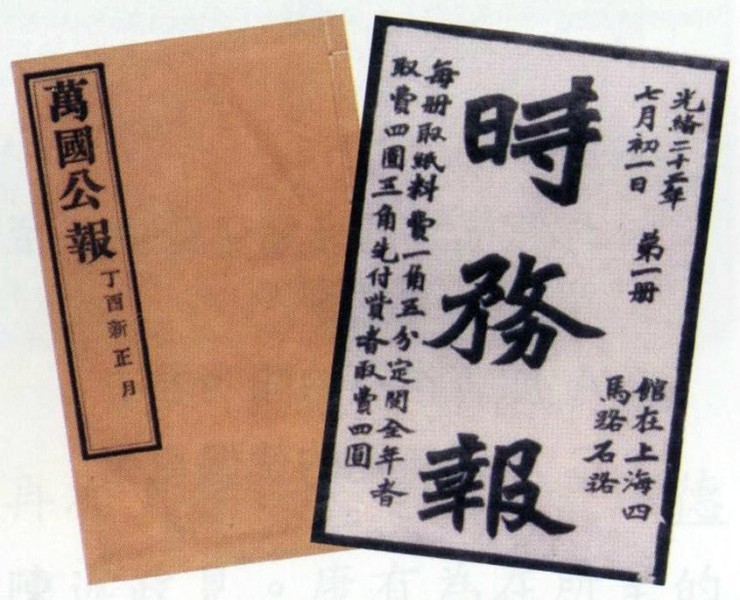 萬國公報
丁酉新正月
光緒二十二年
七月初一日
第一册
館在上海四
馬路石路
時務報
每册取紙料費一角五分定閱全年者
取費四圓五角先付貲者取費四圓